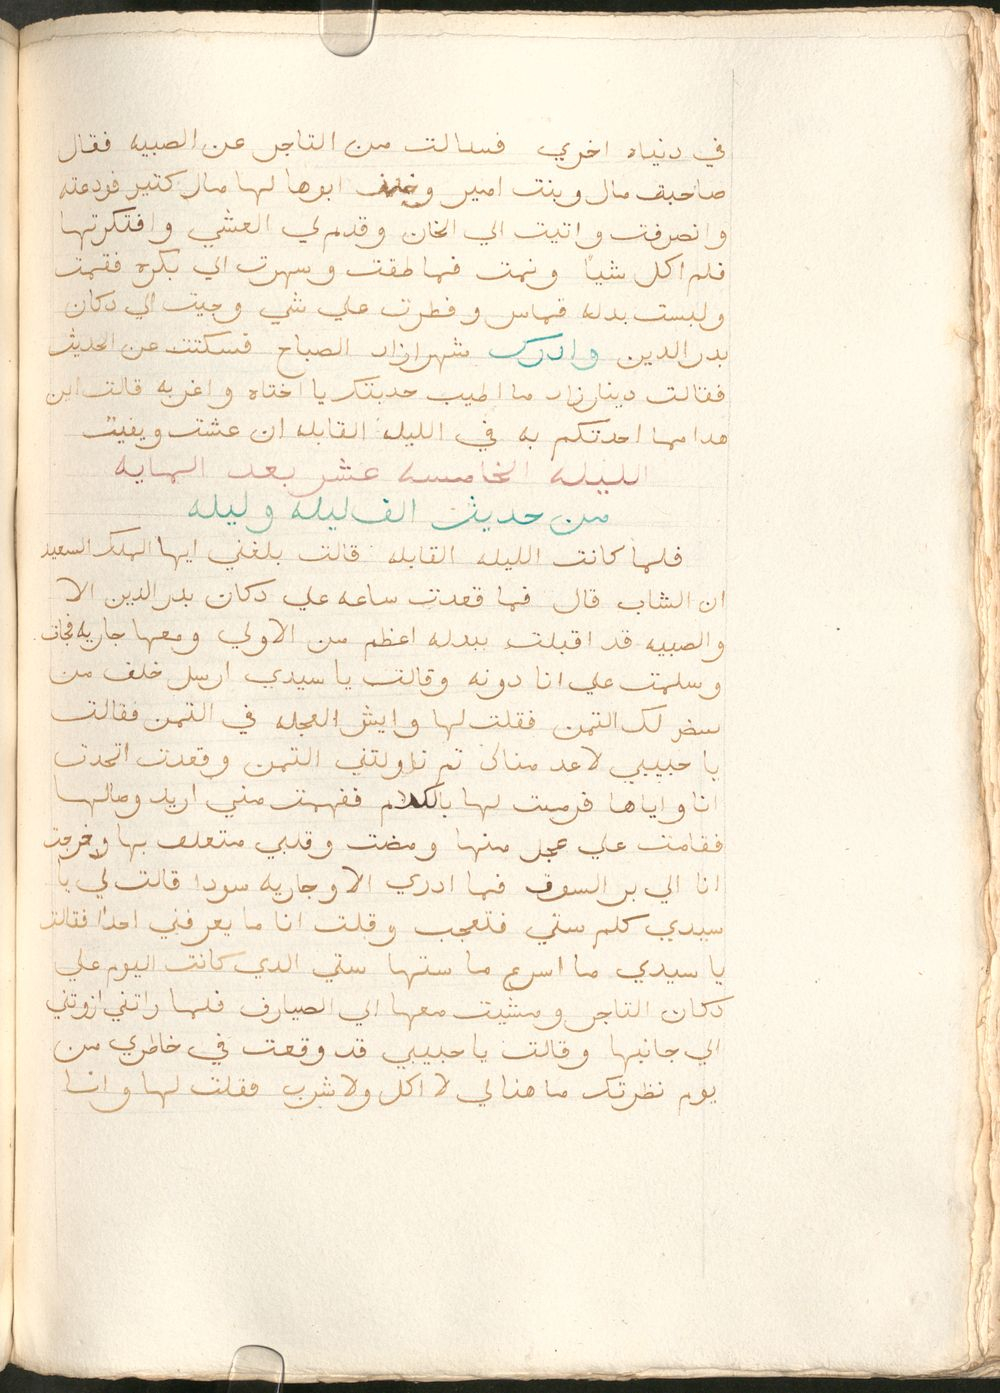 في دنياه اخري فسالت من التاجر عن الصبيه فقال
صاحبة مال وبنت امير وخلف ابوها لها مال كتير فودعته
وانصرفت واتيت الي الخان وقدم لي العشي وافتكرتها
فلم اكل شياً ونمت فما طقت وسهرت الي بكره فقمت
ولبست بدله قماس وفطرت علي شي وجيت الي دكان
بدر الدين وادرك شهرازاد الصباح فسكتت عن الحديث
فقالت دينارزاد ما اطيب حديتك يا اختاه واغربه قالت اين
هدا مما احدتكم به في الليله القابله ان عشت وبقيت
الليله الخامسه عشر بعد المايه
من حديث الف ليله وليله
فلما كانت الليله القابله قالت بلغني ايها الملك السعيد
ان الشاب قال فما قعدت ساعه علي دكان بدر الدين الا
والصبيه قد اقبلت ببدله اعظم من الاولي ومعها جاريه فجات
وسلمت علي انا دونه وقالت يا سيدي ارسل خلف من
لك التمن فقلت لها وايش العجله في التمن فقالت
يا حبيبي لا عدمناك تم ناولتني التمن وقعدت اتحدت
انا واياها فرميت لها بالكلام ففهمت مني اريد وصالها
فقامت علي عجل منها ومضت وقلبي متعلف بها وخرجت
انا الي بر السوف فما ادري الا وجاريه سودا قالت لي يا
سيدي كلم ستي فتعجب وقلت انا ما يعرفني احداً فقالت
يا سيدي ما اسرع ما ستها ستي الدي كانت اليوم علي
دكان التاجر ومشيت معها الي الصيارف فلما راتني ازوتني
الي جانبها وقالت يا حبيبي قد وقعت في خاطري من
يوم نظرتك ما هنا لي لا اكل ولا شرب فقلت لها وانا